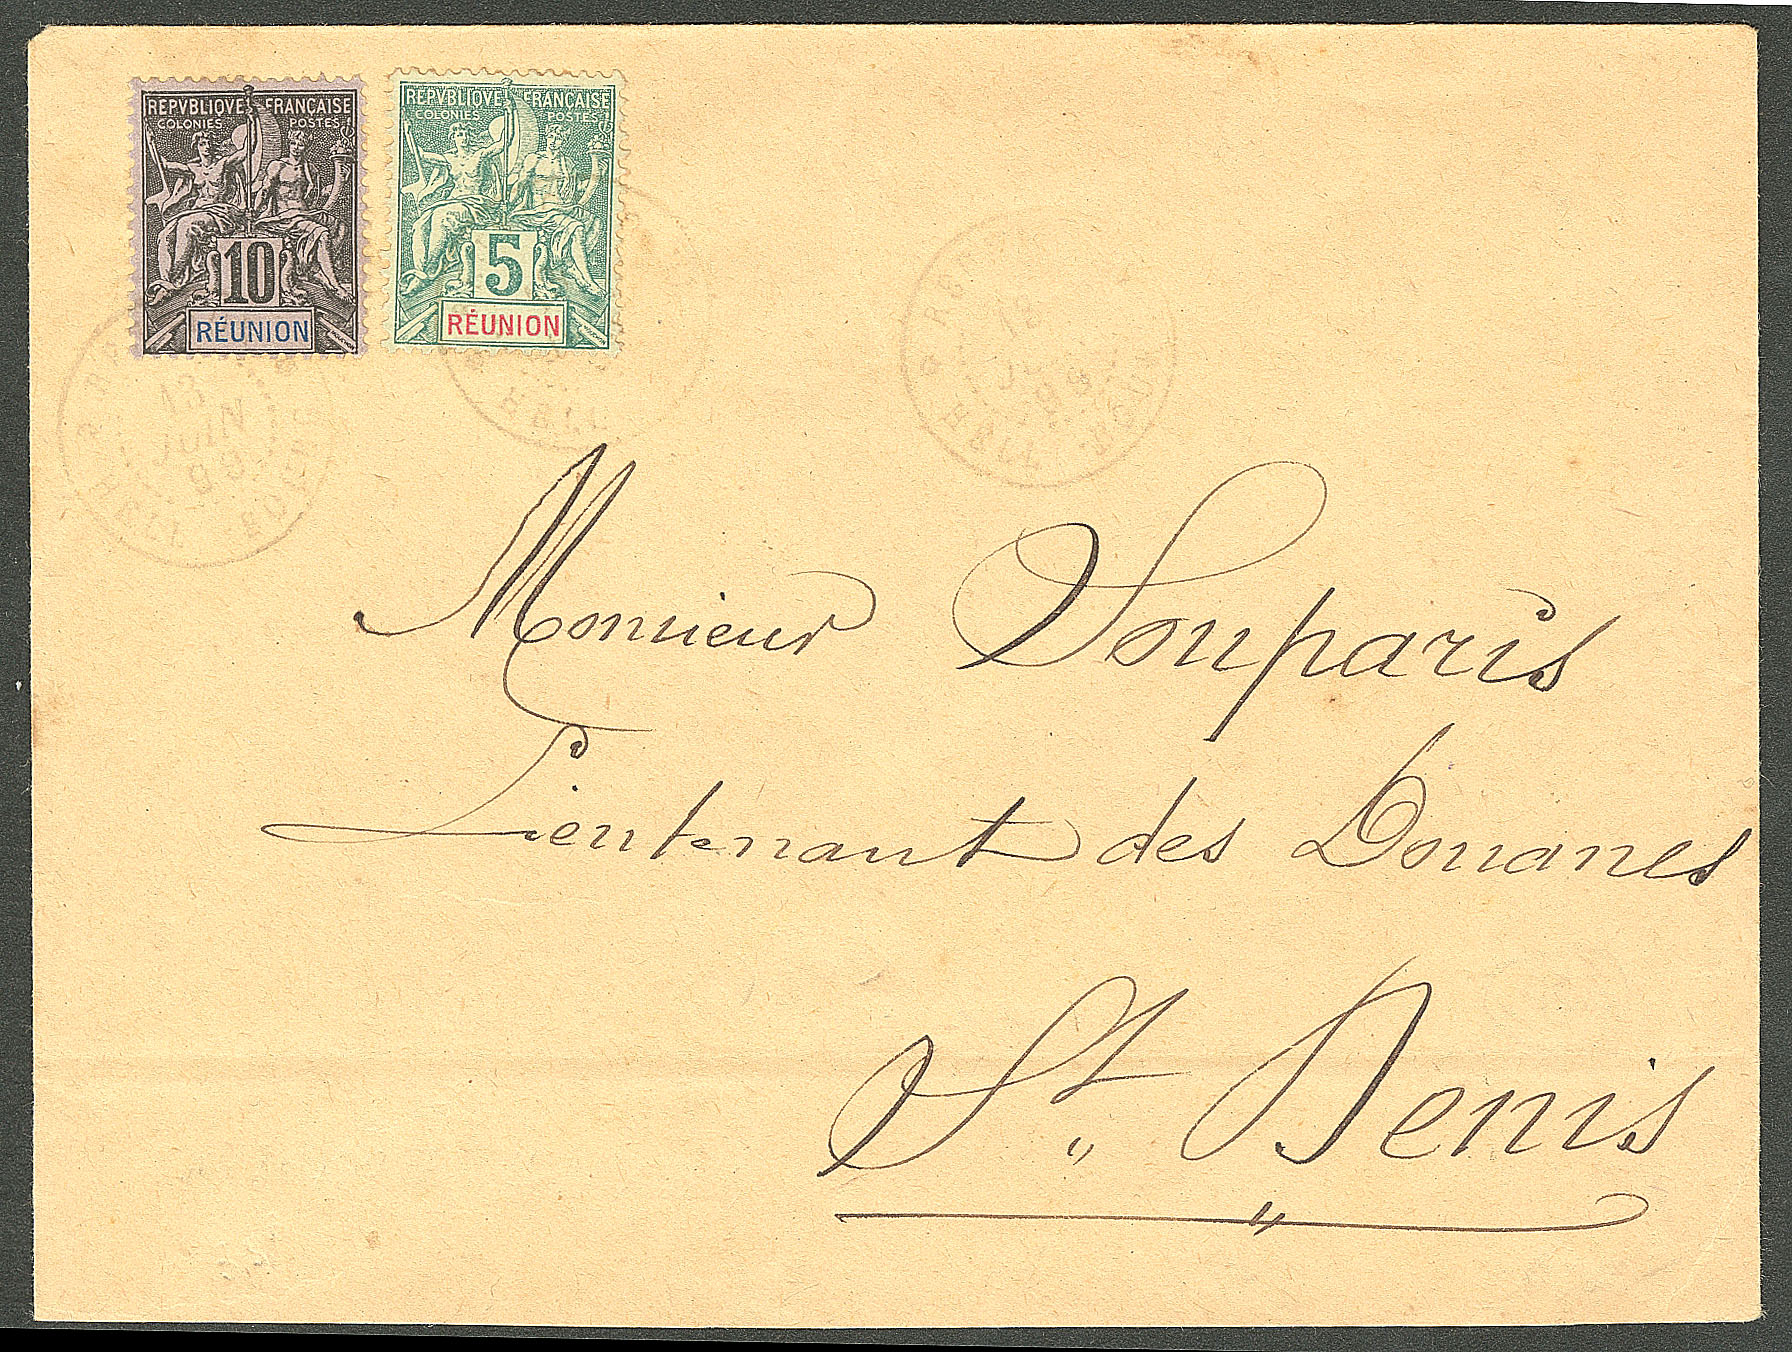 REPVBLIQVE FRANÇAISE
COLONIES POSTES
10
RÉUNION
REPVBLIQVE FRANÇAISE
COLONIES POSTES
5
RÉUNION
Monsieur Souparis
Lieutenant des Douanes
St Denis